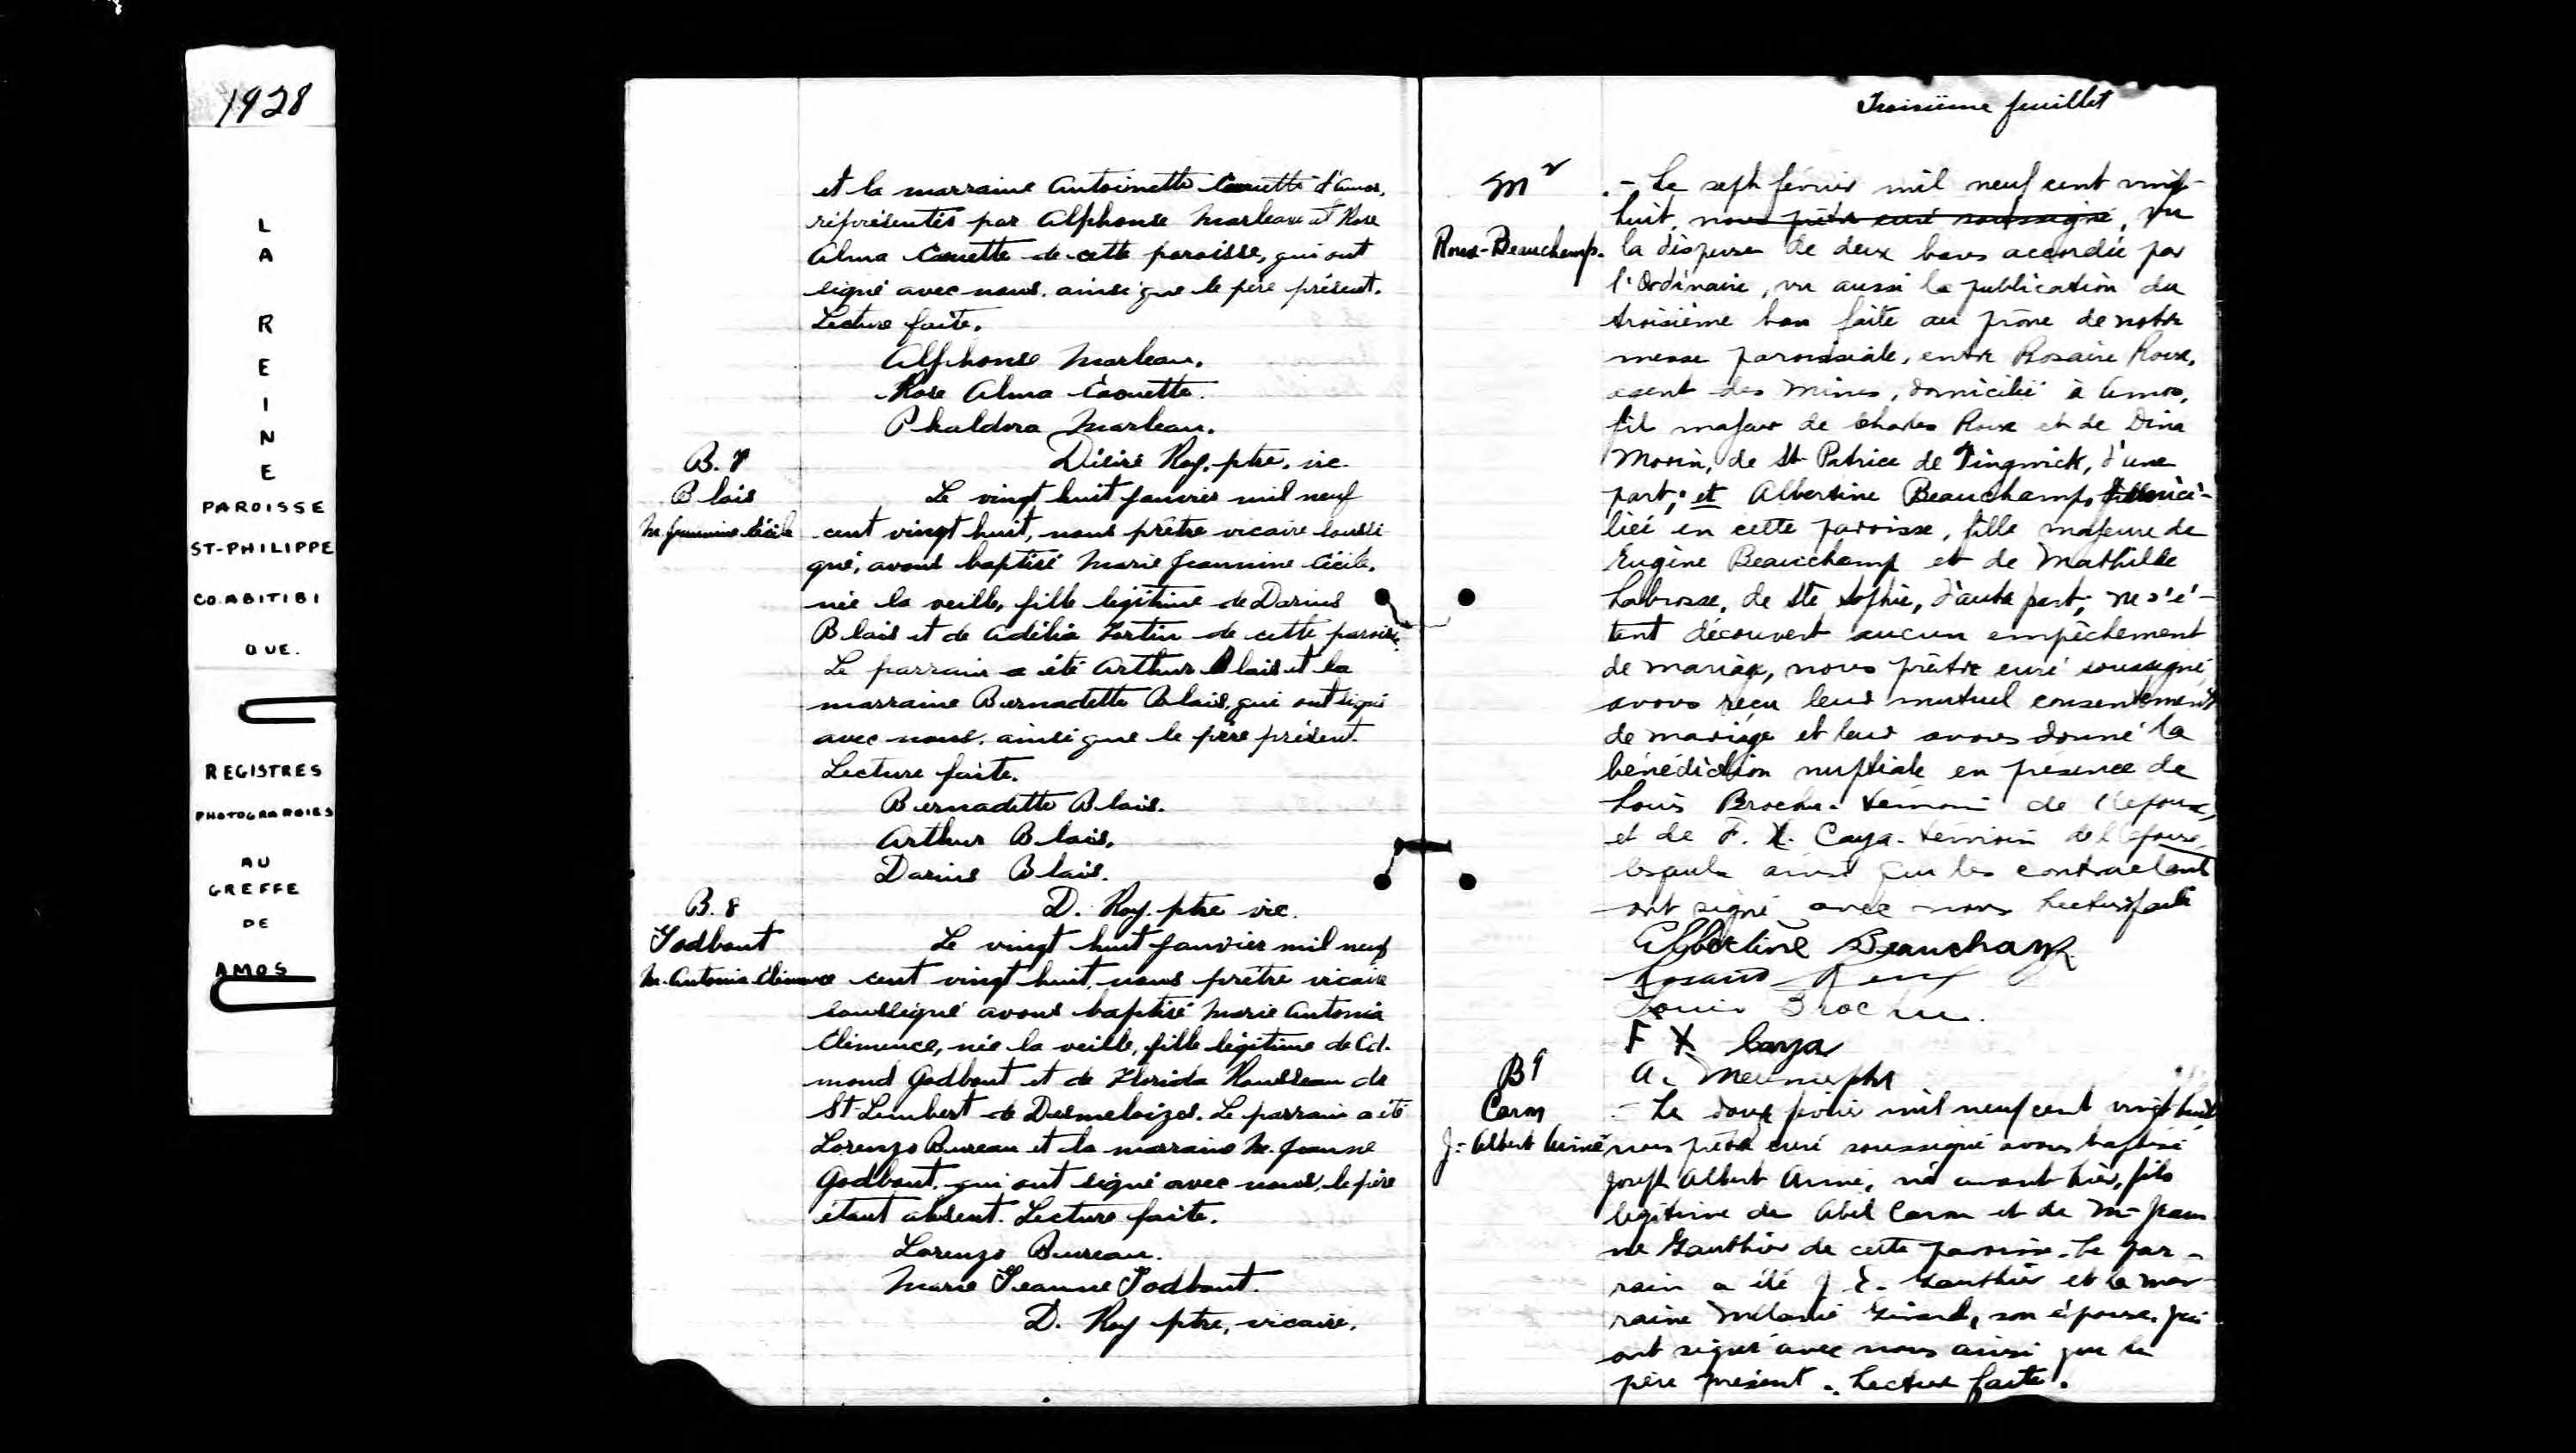 1928
L
A
R
E
I
N
E
PAROISSE
ST-PHILIPPE
CO. ABITIBI
QUE.
REGISTRES
PHOTOGRAPHIES
AU
GREFFE
DE
AMOS
et la marraine Antoinette Caouette d'Amos,
représentés par Alphonse Marleau et Rose
Alma Caouette de cette paroisse, qui ont
signé avec nous, ainsi que le père présent.
Lecture faite.
Alphonse Marleau.
Rose Alma Caouette.
Phaldora Marleau.
Désiré Roy, ptre. vic.
B. 7
Blais
M. Jeannine Cécile
Le vingt huit janvier mil neuf
cent vingt huit, nous prêtre vicaire soussi
gné, avons baptisé Marie Jeannine Cécile,
née la veille, fille légitime de Darius
Blais et de Adélia Fortin de cette paroisse.
Le parrain a été Arthur Blais et la
marraine Bernadette Blais, qui ont signé
avec nous, ainsi que le père présent.
Lecture faite.
Bernadette Blais.
Arthur Blais.
Darius Blais.
D. Roy. ptre vic.
B. 8
Godbout
M. Antonia Clémence
Le vingt huit janvier mil neuf
cent vingt huit, nous prêtre vicaire
soussigné avons baptisé Marie Antonia
Clémence, née la veille, fille légitime de Ed-
mond Godbout et de Florida Rousseau de
St-Lambert de Desmeloizes. Le parrain a été
Lorenzo Bureau et la marraine M. Jeanne
Godbout, qui ont signé avec nous, le père
étant absent. Lecture faite.
Lorenzo Bureau.
Marie Jeanne Godbout.
D. Roy ptre, vicaire.
Troisième feuillet
M 2
Roux-Beauchamp.
.- Le sept février mil neuf cent vingt-
huit, nous prêtre curé soussigné, vu
la dispense de deux bans accordée par
l'Ordinaire, vu aussi la publication du
troisième ban faite au prône de notre
messe paroissiale, entre Rosaire Roux,
agent des Mines, domicilié à Amos,
fils majeur de Charles Roux et de Dina
Morin, de St Patrice de Tingwick, d'une
part; et Albertine Beauchamp, domici-
liée en cette paroisse, fille majeure de
Eugène Beauchamp et de Mathilde
Labrosse, de Ste Sophie, d'autre part; ne s'é-
tant découvert aucun empêchement
de mariage, nous prêtre curé soussigné,
avons reçu leur mutuel consentement
de mariage et leur avons donné la
bénédiction nuptiale en présence de
Louis Brochu. témoin de l'époux,
et de F. X. Caya. témoin de l'épouse,
lesquels ainsi que les contractants
ont signé avec nous Lecture faite
Albertine Beauchamp.
Rosaire Roux
Louis Brochu.
F X Caya
A.
B 9
Caron
J- Albert Aimé
- Le douze février mil neuf cent vingt huit,
nous prêtre curé soussigné avons baptisé
Joseph Albert Aimé, né avant hier, fils
légitime de Abel Caron et de M- Jean
ne Gauthier de cette paroisse. Le par-
rain a été J. E. Gauthier et la mar-
raine Mélanie Girard, son épouse, qui
ont signé avec nous ainsi que le
père présent. Lecture faite.